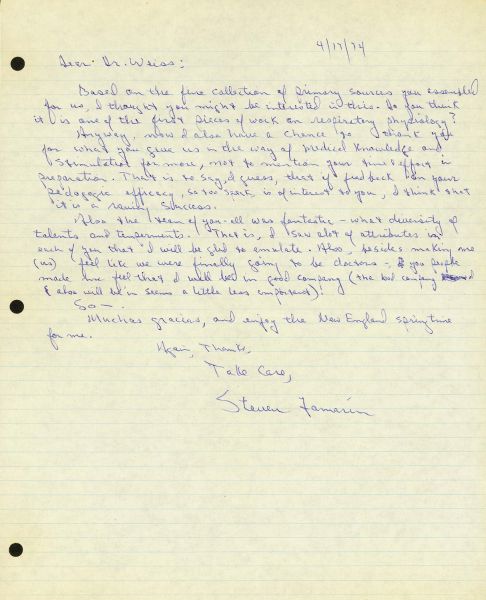 4/17/74
Dear Dr. Weiss:
Based on the fine collection of primary sources you assembled
for us, I thought you might be interested in this. Do you think
it is one of the first pieces of work on respiratory physiology?
Anyway, now I also have a chance to thank you
for what you give us in the way of medical knowledge and
stimulation for more, not to mention your time & effort in
preparation. That is to say, I guess, that if feedback on your
pedagogic efficacy, so to speak, is of interest to you, I think that
it is a success.
Also the team of you-all was fantastic – what diversity of
talents and temperments. That is, I saw alot of attributes in
each of you that I will be glad to emulate. Also, besides making me
(us) feel like we were finally going to be doctors –, you people
made me feel that I will be in good company (the bad company
I also will be in seems a little less important)!
So —.
Muchas gracias, and enjoy the New England springtime
for me.
Again, Thanks,
Take Care,
Steven